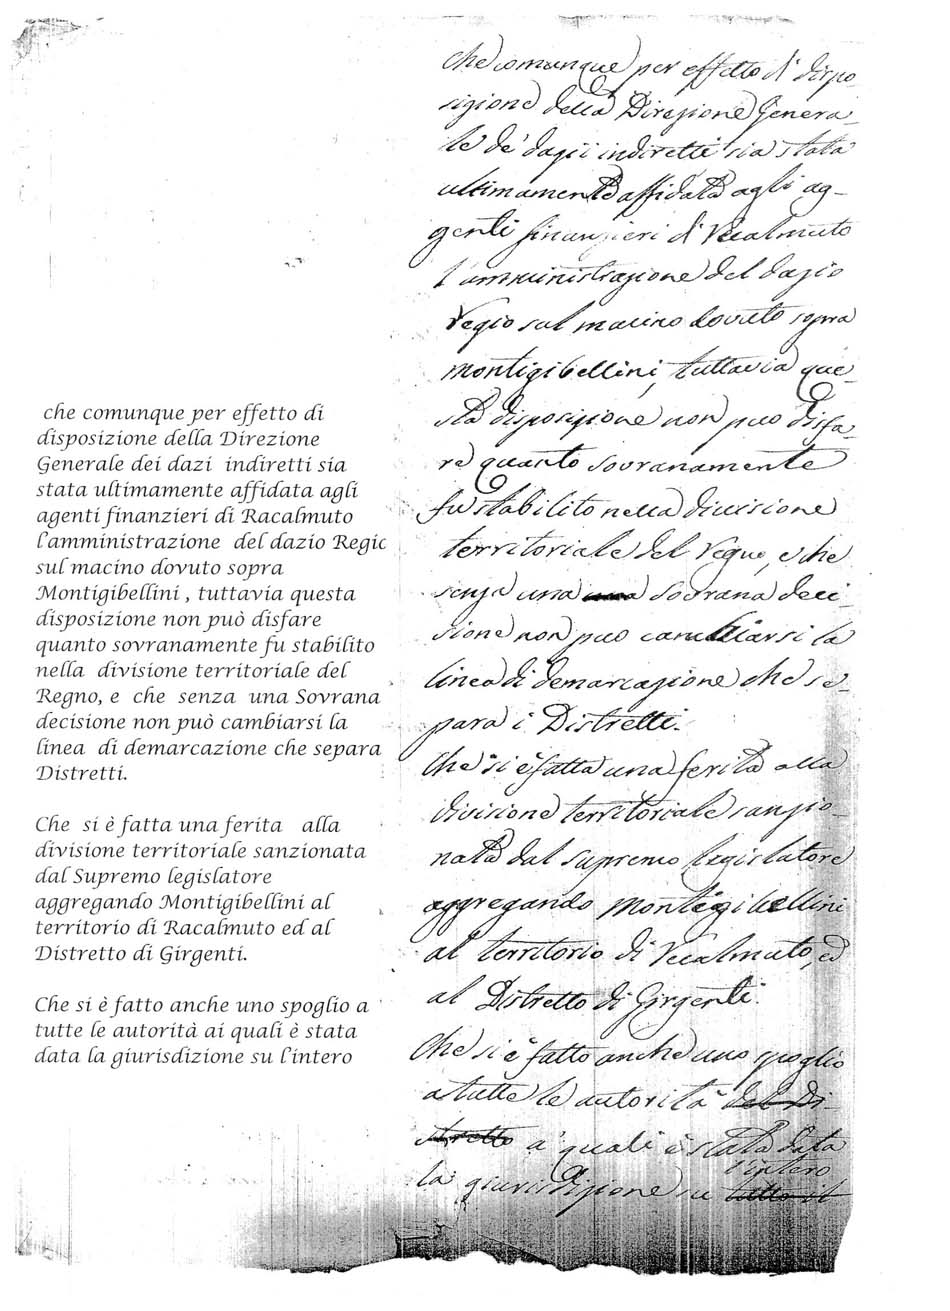 che comunque per effetto di
disposizione della Direzione
Generale dei dazi indiretti sia
stata ultimamente affidata agli
agenti finanzieri di Racalmuto
l'amministrazione del dazio Regio
sul macino dovuto sopra
Montigibellini , tuttavia questa
disposizione non può disfare
quanto sovranamente fu stabilito
nella divisione territoriale del
Regno, e che senza una Sovrana
decisione non può cambiarsi la
linea di demarcazione che separa
Distretti.
Che si è fatta una ferita alla
divisione territoriale sanzionata
dal Supremo legislatore
aggregando Montigibellini al
territorio di Racalmuto ed al
Distretto di Girgenti.
Che si è fatto anche uno spoglio a
tutte le autorità ai quali è stata
data la giurisdizione su l'intero
che comunque per effetto di dispo-
sizione della Direzione Genera-
le de' dazii indiretti sia stata
ultimamente affidata agli ag-
genti finanzieri di Recalmuto
l'amministrazione del dazio
Regio sul macino dovuto sopra
montigibellini, tuttavia que-
sta disposizione non può disfa-
re quanto sovranamente
fu stabilito nella divisione
territoriale del Regno, e che
senza una sovrana deci-
sione non può cambiarsi la
linea di demarcazione che se-
para i Distretti.
Che si è fatta una ferita alla
divisione territoriale sanzio-
nata dal supremo legislatore
aggregando montigibellini
al territorio di Recalmuto, ed
al Distretto di Girgenti.
Che si è fatto anche uno spoglio
a tutte le autorità del Di-
stretto a' quali è stata data
l'intero
la giurisdizione su tutto il